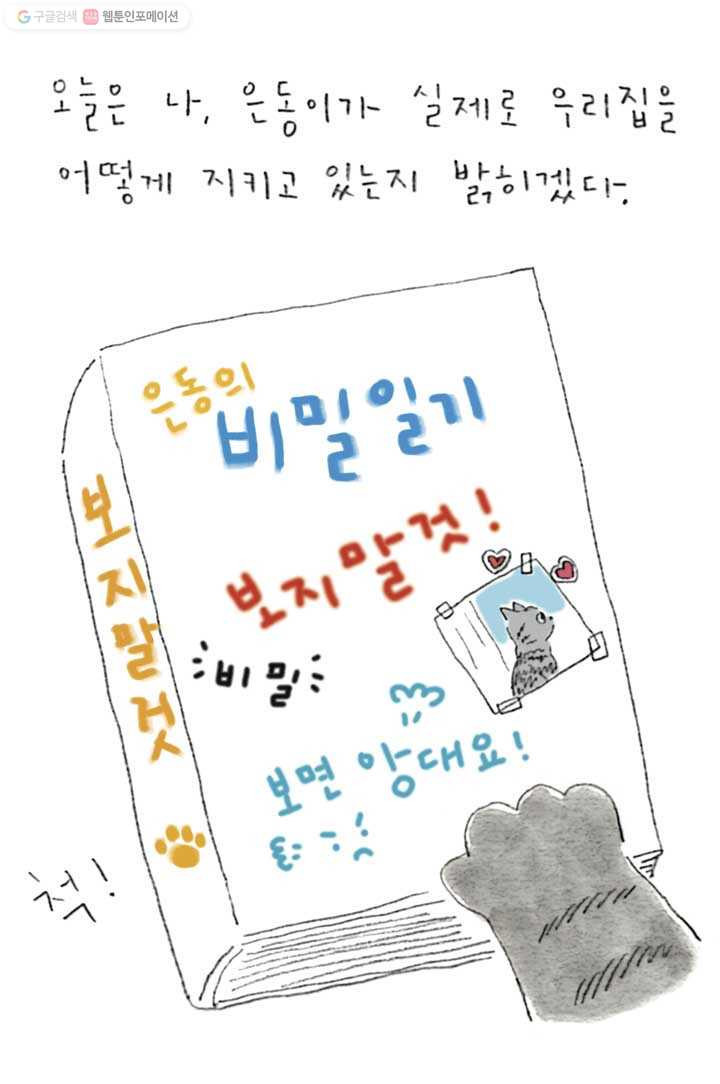 구글검색 웹툰인포메이션
오늘은 나, 은동이가 실제로 우리집을
어떻게 지키고 있는지 밝히겠다.
은동의
비밀일기
보지말것!
보지말것
비밀
보면 앙대요!
척!